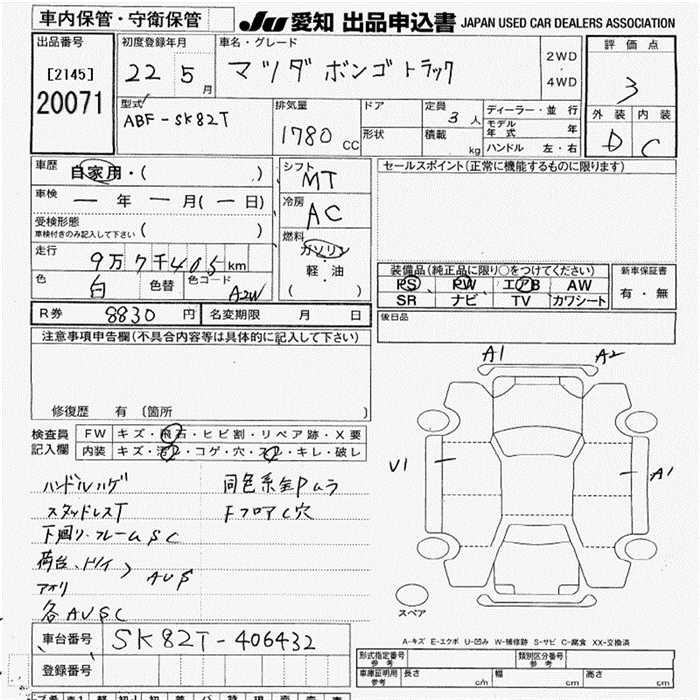 車内保管・守衛保管
JU 愛知 出品申込書 JAPAN USED CAR DEALERS ASSOCIATION
出品番号
[2145]
20071
初度登録年月
22 5月
車名・グレード
マツダボンゴトラック
2WD
4WD
評価点
3
外装 内装
D C
型式
ABF-SK82T
排気量
1780 CC
ドア
形状
定員
3人
積載
kg
ディーラー・並行
モデル年式 年
ハンドル 左・右
車歴
自家用・( )
車検
ー年ー月(ー日)
受検形態
車検付きのみ記入して下さい ( )
走行
9万7千405km
色
白
色替
色コード
A2W
シフト
MT
冷房
AC
燃料
ガソリン
軽・油
( )
セールスポイント(正常に機能するものに限ります)
装備品(純正品に限り○をつけてください)
PS PW エアB AW
SR ナビ TV カワシート
新車保証書
有・無
後日品
R券 8830円
名変期限 月 日
注意事項申告欄(不具合内容等は具体的に記入して下さい)
修復歴 有 〔箇所 〕
検査員記入欄
FW キズ・飛石・ヒビ割・リペア跡・X要
内装 キズ・汚レ・コゲ・穴・スレ・キレ・破レ
ハンドルハゲ
同色系全Pムラ
スタッドレスT
Fフロア C穴
下廻り・フレームSC
荷台、トリイ
アオリ
AUS
各AUSC
A1 A2
V1
A1
スペア
A-キズ E-エクボ U-凹み W-補修跡 S-サビ C-腐食 XX-交換済
車台番号 SK82T-406432
登録番号
型式指定番号 参考
類別区分番号 参考
車庫証明用 参考
長さ cm
幅 cm
高さ cm